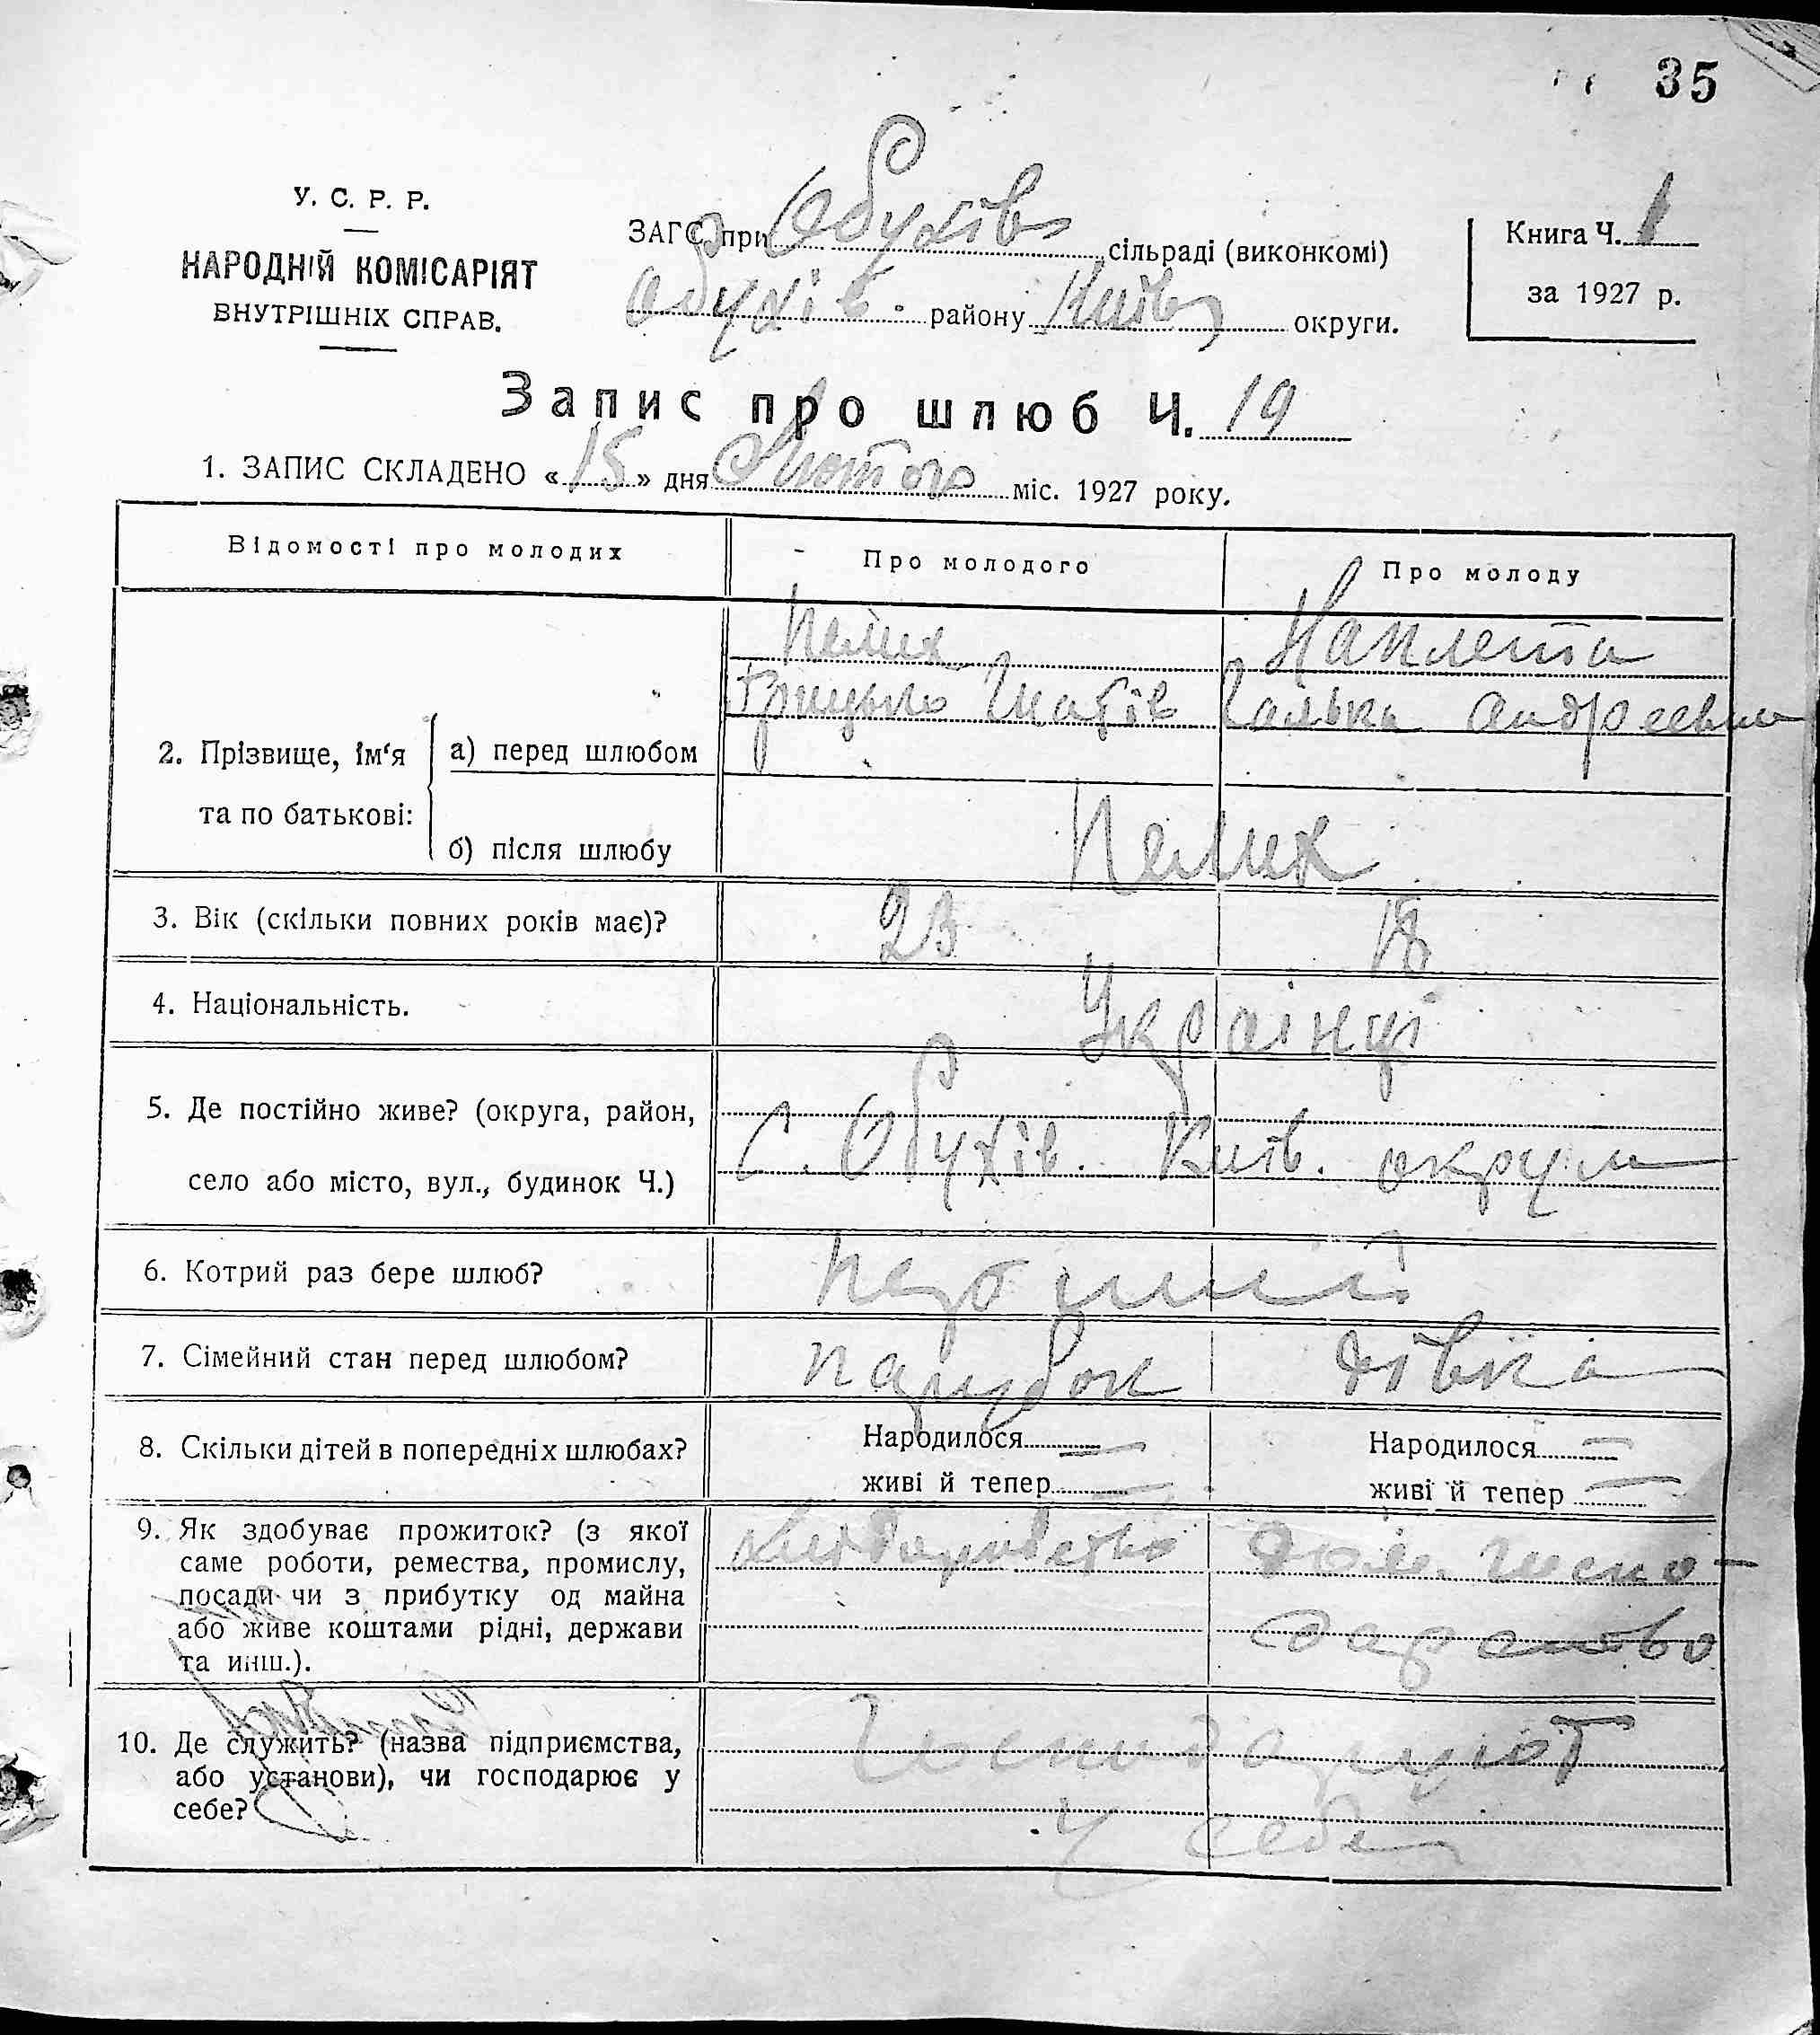 35
У. С. Р. Р.
НАРОДНІЙ КОМІСАРІЯТ
ВНУТРІШНІХ СПРАВ.
ЗАГС при Обухів сільраді (виконкомі)
Обухів. району Київ округи.
Книга Ч. 1
за 1927 р.
Запис про шлюб Ч. 19
1. ЗАПИС СКЛАДЕНО «15» дня Лютого міс. 1927 року.
Відомості про молодих Про молодого Про молоду
2. Прізвище, ім‘я та по батькові:
а) перед шлюбом
Пелих Наплета
Грицько Галька Андреевна
б) після шлюбу Пелих
3. Вік (скільки повних років має)? 23 18
4. Національність. Украінці
5. Де постійно живе? (округа, район,
село або місто, вул., будинок Ч.)
С. Обухів. Київ. округи
6. Котрий раз бере шлюб? первший
7. Сімейний стан перед шлюбом? парубок дівка
8. Скільки дітей в попередніх шлюбах? Народилося — Народилося —
живі й тепер — живі й тепер —
9. Як здобуває прожиток? (з якої
саме роботи, ремества, промислу,
посади чи з прибутку од майна
або живе коштами рідні, держави
та инш.).
Хліборобство Дом. госпо-
дарство
10. Де служить? (назва підприємства,
або установи), чи господарює у
себе?
Господарюют
у себе